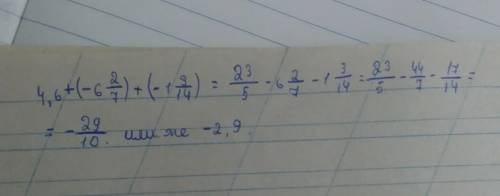 4,6+(-6 2/7)+(-1 3/14) = 23/5 - 6 2/7 - 1 3/14 = 23/5 - 44/7 - 17/14 =
= - 29/10. или же -2,9.